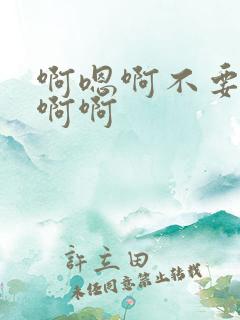 啊嗯啊不要
啊啊
許立田
未经同意禁止转载